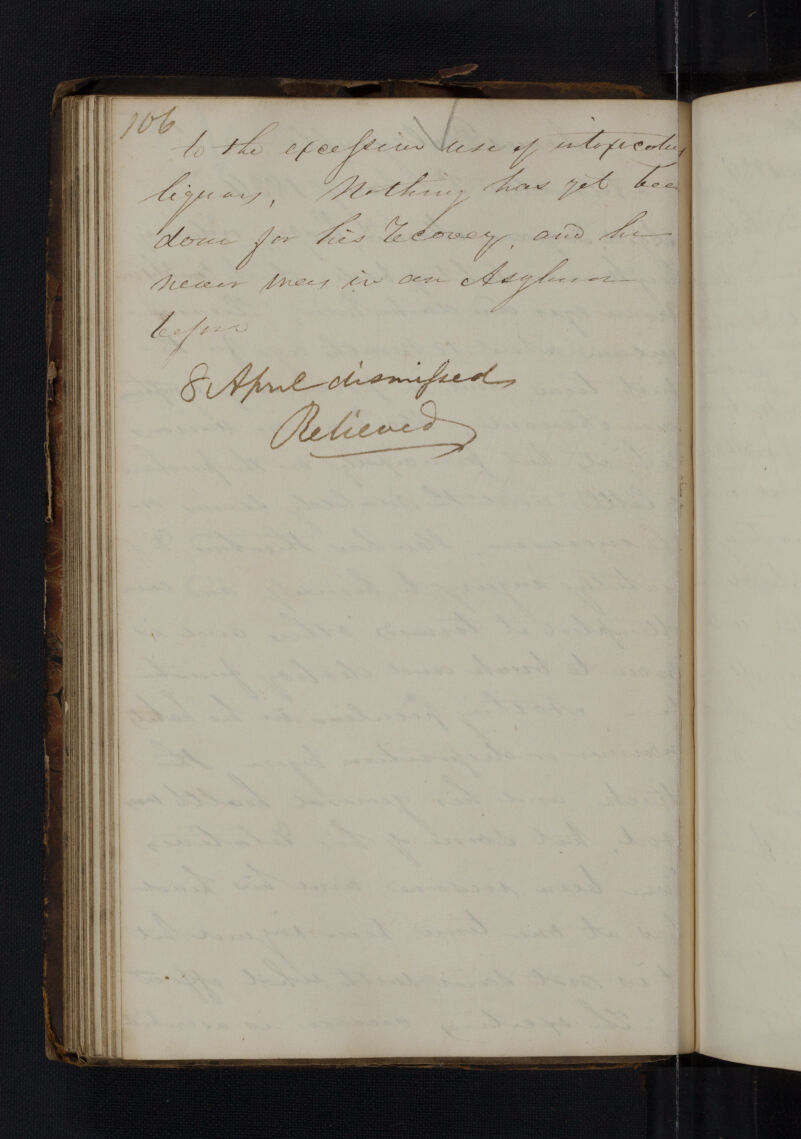 106
to the excessive use of intoxicating
liquors, Nothing has yet bee
done for his recovery, and he
never was in an Asylum
before
8 April dismissed
Relieved